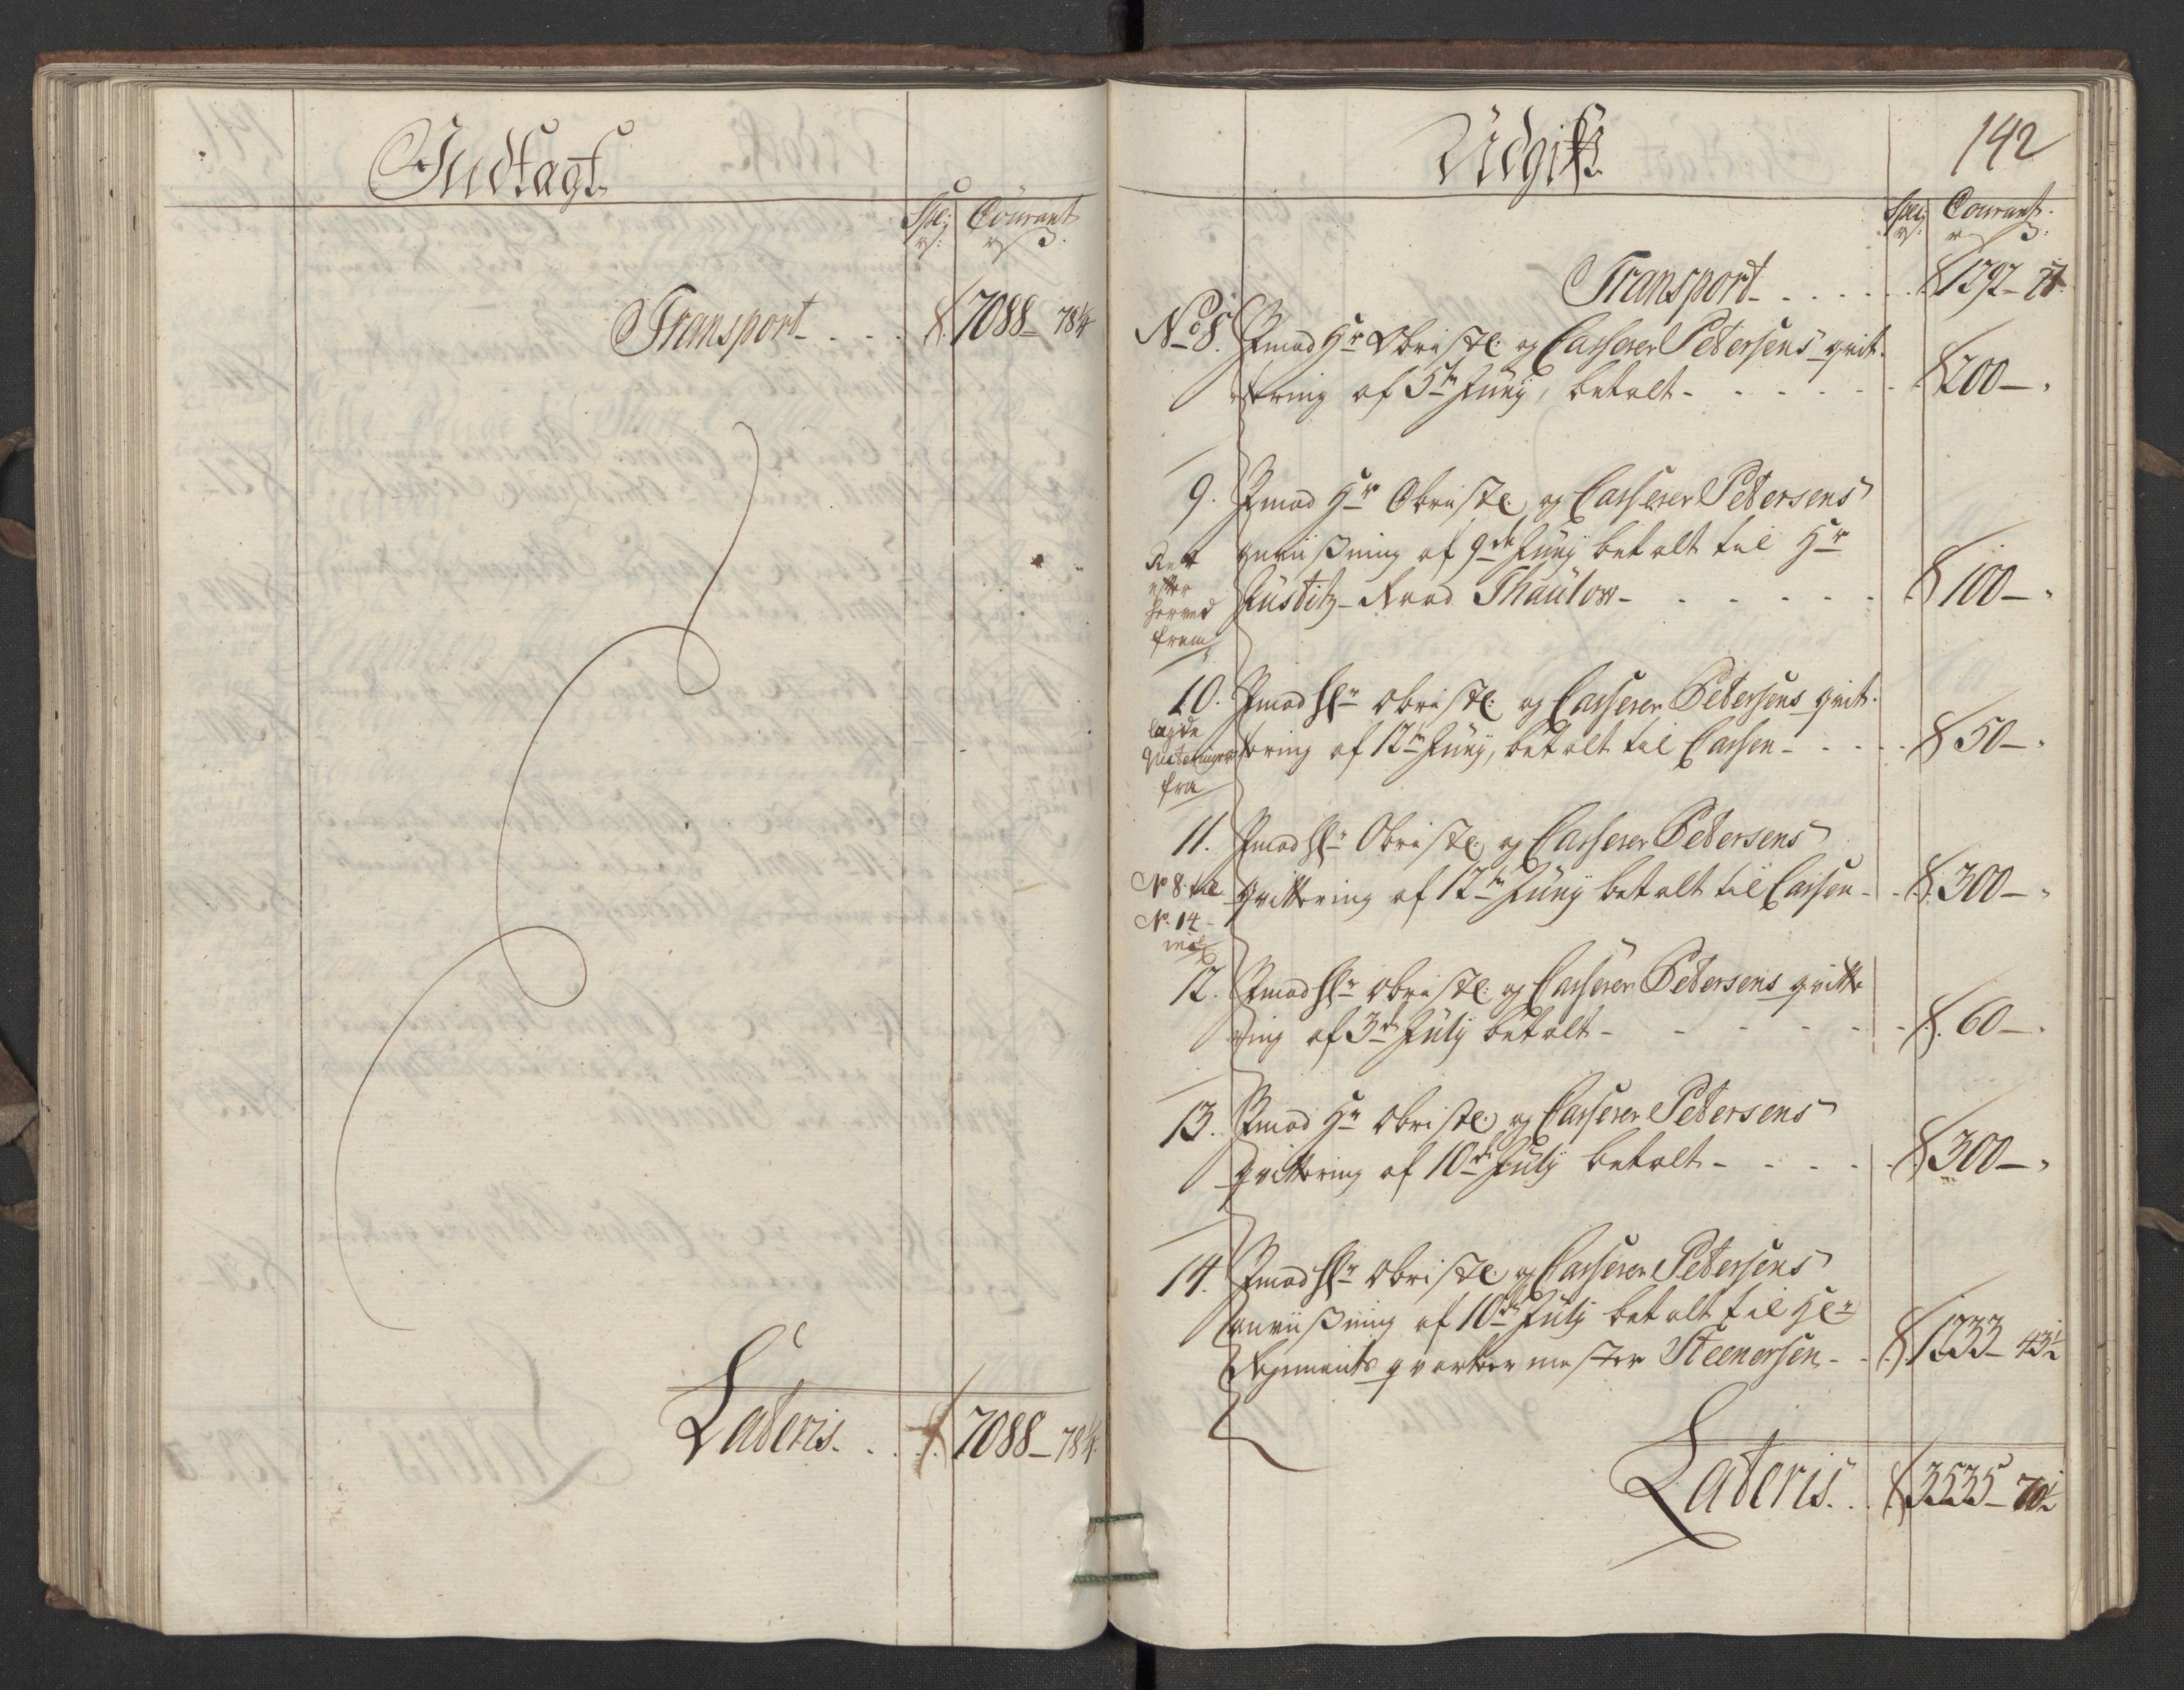 Indtagt
Spe: Courant
rd: rd ß.
Transport - . . . 7088 - 78 1/4
Lateris. . . . 7088 - 78 1/4
142
Udgift
Spe: Courant.
rd: rd ß.
Transport - . . . . 1292 - 27.
No 8. Imod Hr Obristl: og Casserer Petersens qvit-
tering af 5te Junij, betalt - . . . . . 200 - "
9. Imod Hr Obristl: og Casserer Petersens
anviißning af 9de Junij betalt til Hr
Justitz-Raad Thaulow - . . . . . 100 - "
Rett
efter
herved
frem
10. Imod Hr Obristl: og Casserer Petersens qvit-
tering af 12te Junij, betalt til Cassen - . . . . 50 - "
lagde
Qviteringer
fra
11. Imod Hr Obristl: og Casserer Petersens
Qvittering af 12te Junij betalt til Cassen - . . 300 - "
No 8. til
No. 14 -
incl
12. Imod Hr Obristl: og Casserer Petersens qvitte
ring af 3de Julij betalt - . . . . . 60 - "
13. Imod Hr Obristl: og Casserer Petersens
qvittering af 10de Julij betalt - . . . . 300 - "
14. Imod Hr Obristl: og Casserer Petersens
anviißning af 10de Julij betalt til Hr
Regiments qvarteermester Steenersen - . . 1233 - 43 1/2
Lateris. . . 3535 - 70 1/2